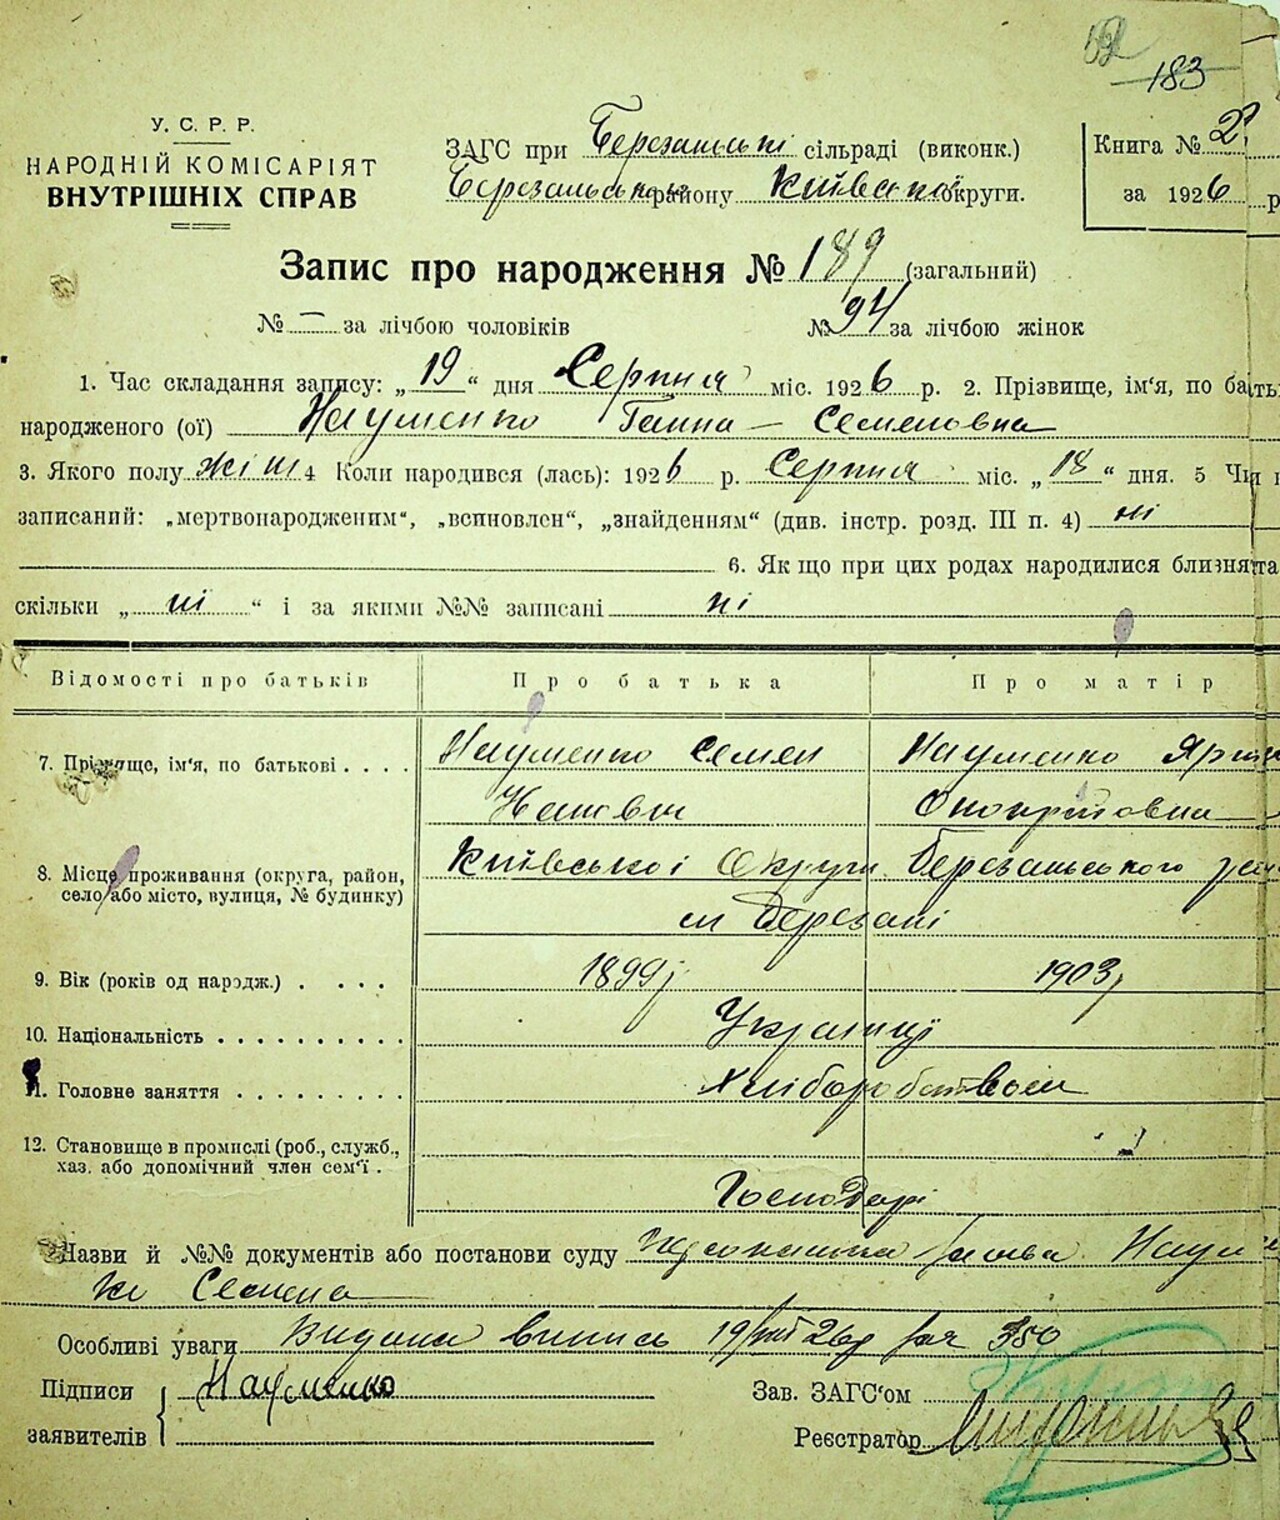 183
У. С. Р. Р.
НАРОДНІЙ КОМІСАРІЯТ
ВНУТРІШНІХ СПРАВ
ЗАГС при Березанські сільраді (виконк.)
Березанського району Київської округи.
Книга № 2
за 1926 р
Запис про народження № 189 (загальний)
№ — за лічбою чоловіків № 94 за лічбою жінок
1. Час складання запису: „19“ дня Серпня міс. 1926 р. 2. Прізвище, ім'я, по бать
народженого (ої) Науменко Ганна — Семеновна
3. Якого полу жін 4 Коли народився (лась): 1926 р. Серпня міс. „18“ дня. 5 Чи
записаний: „мертвонародженим“, „всиновлен“, „знайденням“ (див. інстр. розд. III п. 4) ні
6. Як що при цих родах народилися близнята
скільки „ні“ і за якими №№ записані ні
Відомості про батьків Про батька Про матір
7. Прізвище, ім'я, по батькові . . . . Науменко Семен Науменко
8. Місце проживання (округа, район, село, або місто, вулиця, № будинку) Київської Округи Березанського
м Березані
9. Вік (років од народж.) . . . . 1899р 1903р
10. Національність . . . . . . . . . . Українці
11. Головне заняття . . . . . . . . . Хліборобством
12. Становище в промислі (роб., служб., хаз. або допомічний член сем'ї .
Господарі
Назви й №№ документів або постанови суду
Семена
Особливі уваги Видана випись 19/VIII 26р за № 350
Підписи Науменко Зав. ЗАГС'ом
заявителів Реєстратор